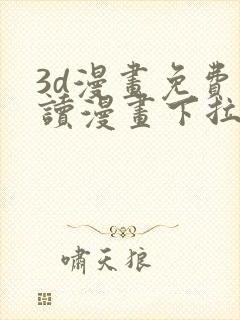 3d漫畫免費
讀漫畫下拉
嘯天狼